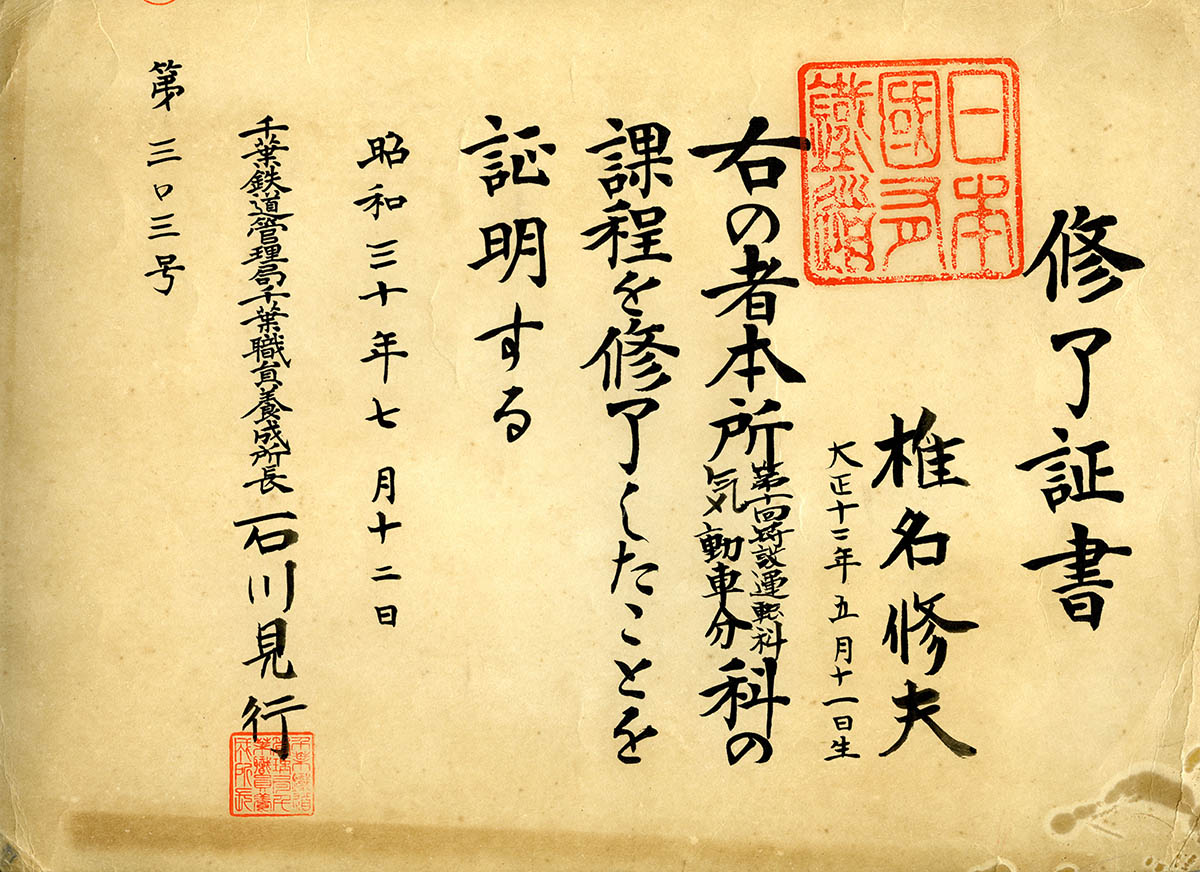 修了証書
日本
國有
鐵道
椎名修夫
大正十二年五月十一日生
右の者本所第十回特設運転科気動車分科の
課程を修了したことを
証明する
昭和三十年七月十二日
千葉鉄道管理局千葉職員養成所長 石川見行
第三〇三号